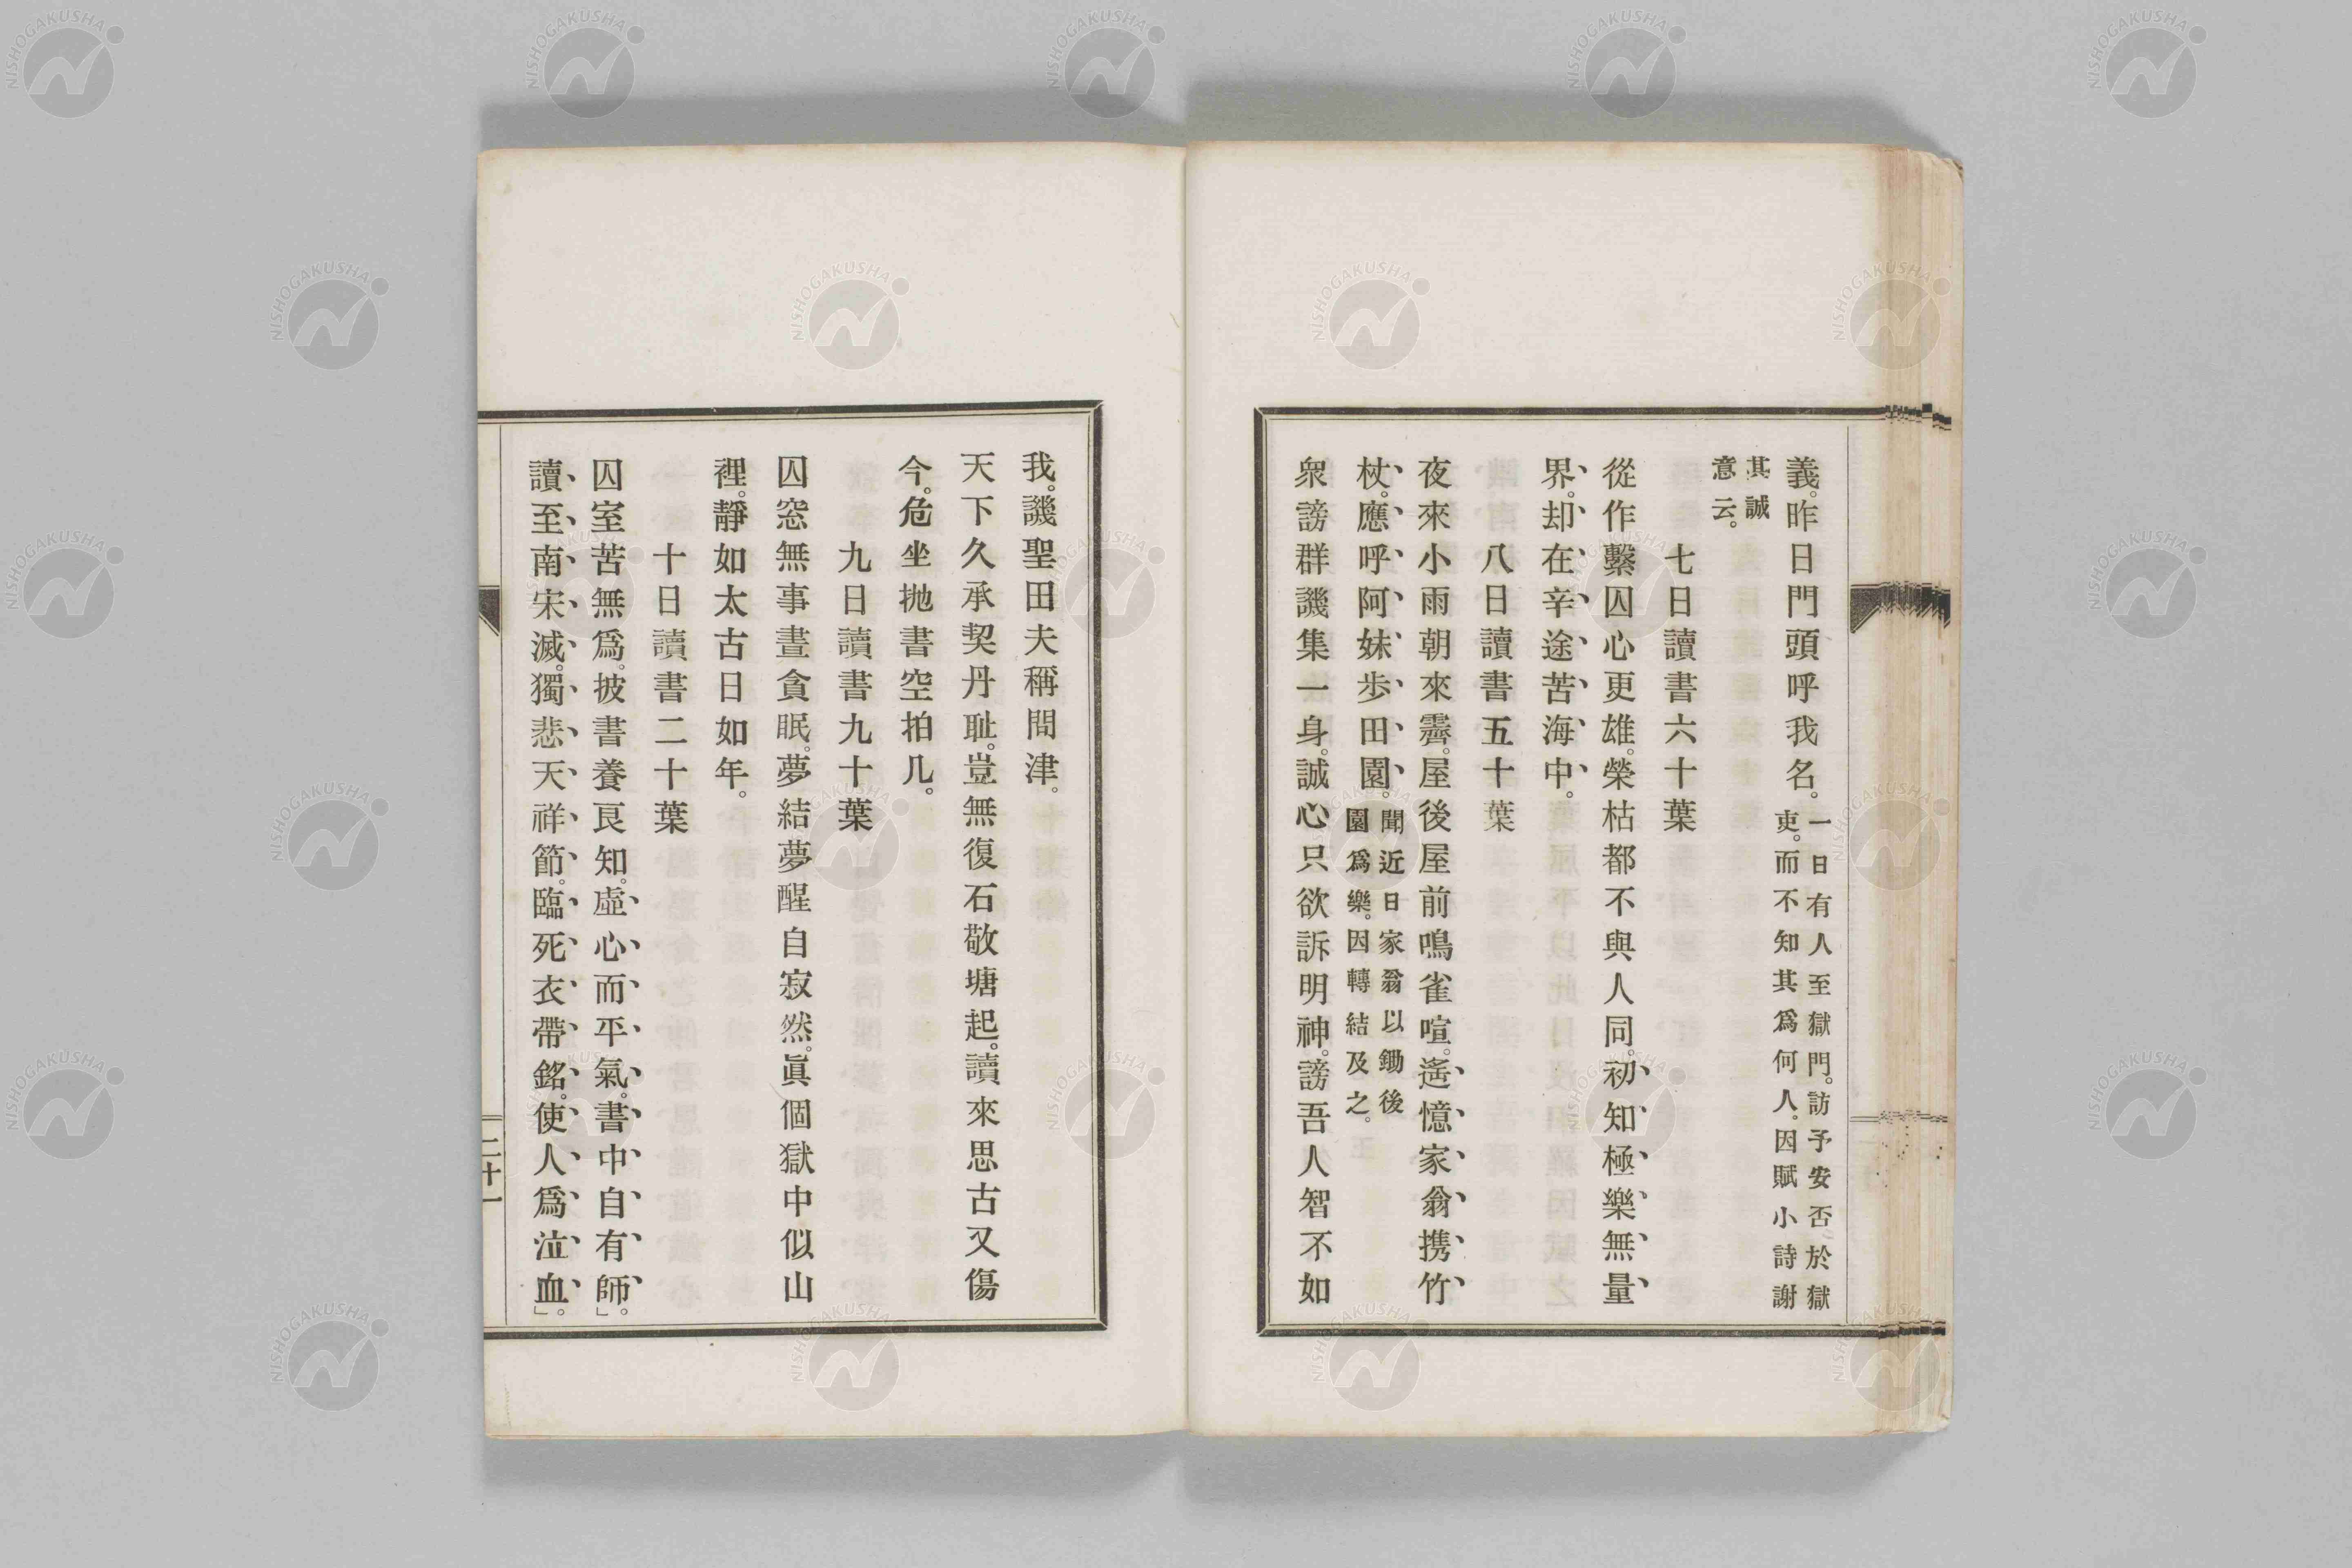 義。昨日門頭呼我名。一日有人至獄門。訪予安否於獄
吏。而不知其爲何人。因賦小詩謝
其誠
意云。
七日讀書六十葉
從作繫囚心更雄。榮枯都不與人同。初知極樂無量
界。却在辛途苦海中。
八日讀書五十葉
夜來小雨朝來霽。屋後屋前鳴雀喧。遙憶家翁携竹
杖。應呼阿妹歩田園。聞近日家翁以鋤後
園爲樂。因轉結及之。
衆謗群譏集一身。誠心只欲訴明神。謗吾人智不如
我。譏聖田夫稱問津。
天下久承契丹耻。豈無復石敬塘起。讀來思古又傷
今。危坐抛書空拍几。
九日讀書九十葉
囚窓無事晝貪眠。夢結夢醒自寂然。眞個獄中似山
裡。靜如太古日如年。
十日讀書二十葉
囚室苦無爲。披書養良知。虛心而平氣。書中自有師」。
讀至南宋滅。獨悲天祥節。臨死衣帶銘。使人爲泣血」。
二十一
NISHOGAKUSHA